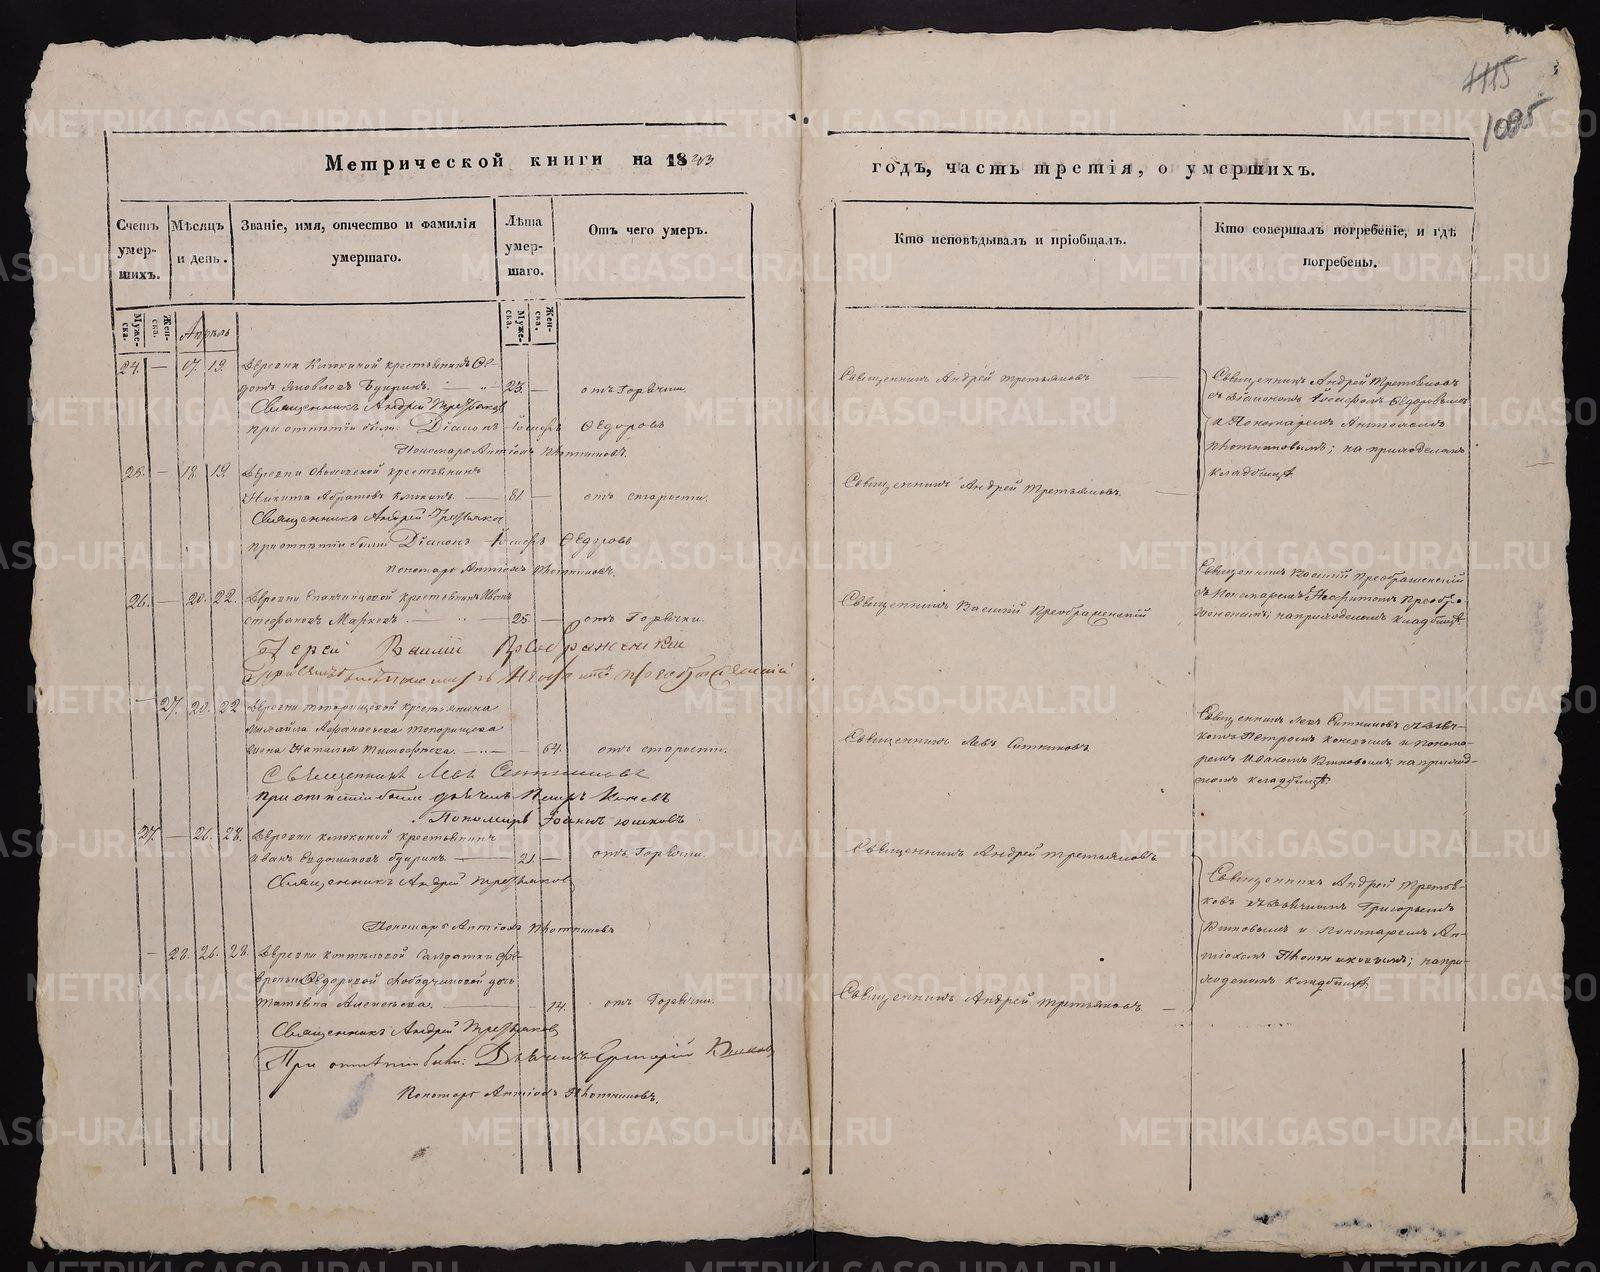 1115
1095
Метрической книги на 1843
годъ, часть третія, о умершихъ.
Счетъ умер-шихъ.
Мѣсяцъ и день.
Званіе, имя, отчество и фамилія умершаго.
Лѣта умер-шаго.
Отъ чего умеръ.
Кто исповѣдывалъ и пріобщалъ.
Кто совершалъ погребеніе, и гдѣ погребены.
Муже-ска.
Жен-ска.
Муже-ска.
Жен-ска.
Апрѣль
24. — 17. 19. Деревни Клюкиной крестьянинъ Ѳе-
дотъ Яковлевъ Букринъ. — 23. — отъ Горячки
Священникъ Андрей Третьяковъ
Священникъ Андрей Третьяковъ
при отпѣтіи были: Діаконъ Іосифъ Ѳедоровъ
Пономарь Антіохъ Плотниковъ.
Священникъ Андрей Третьяковъ
съ Діакономъ Іосифомъ Ѳедоровымъ
и Пономаремъ Антіохомъ
Плотниковымъ; на приходскомъ
кладбищѣ
25. — 18. 19. Деревни крестьянинъ
Никита Клюкинъ. — 81. — отъ старости.
Священникъ Андрей Третьяковъ.
Священникъ Андрей Третьяковъ
при отпѣтіи были: Діаконъ Іосифъ Ѳедоровъ
Пономарь Антіохъ Плотниковъ.
26. — 20. 22. Деревни крестьянинъ Иванъ
Стефановъ Марковъ. — 25. — отъ Горячки.
Священникъ Василій Преображенскій
Іерей Василій Преображенскій
Пономарь Неофитъ Преображенскій
Священникъ Василій Преображенскій
съ Пономаремъ Неофитомъ Преобра-
женскимъ; на приходскомъ кладбищѣ
— 27. 20. 22 Деревни Топорищевой крестьянина
Михайла Афанасьева Топорищева
жена Наталья Тимофеева. — 64. отъ старости.
Священникъ Левъ Ситниковъ
Священникъ Левъ Ситниковъ
при отпѣтіи были дьячекъ Петръ Коневъ
Пономарь Іоаннъ Юшковъ
Священникъ Левъ Ситниковъ съ дьяч-
комъ Петромъ Коневымъ и Понома-
ремъ Иваномъ Юшковымъ; на приход-
скомъ кладбищѣ
27. — 26. 28. Деревни Клюкиной крестьянинъ
Иванъ Евдокимовъ Букринъ — 21. — отъ Горячки
Священникъ Андрей Третьяковъ
Священникъ Андрей Третьяковъ
Пономарь Антіохъ Плотниковъ
— 28. 26. 28. Деревни Солдатки Фев-
роньи Ѳедоровой дочь
Татьяна Алексеева. — 14. отъ Горячки.
Священникъ Андрей Третьяковъ.
Священникъ Андрей Третьяковъ
При отпѣтіи были: Дьячекъ Григорій Юшковъ
Пономарь Антіохъ Плотниковъ.
Священникъ Андрей Третья-
ковъ съ Дьячкомъ Григорьемъ
Юшковымъ и Пономаремъ Ан-
тіохомъ Плотниковымъ; на при-
ходскомъ кладбищѣ.